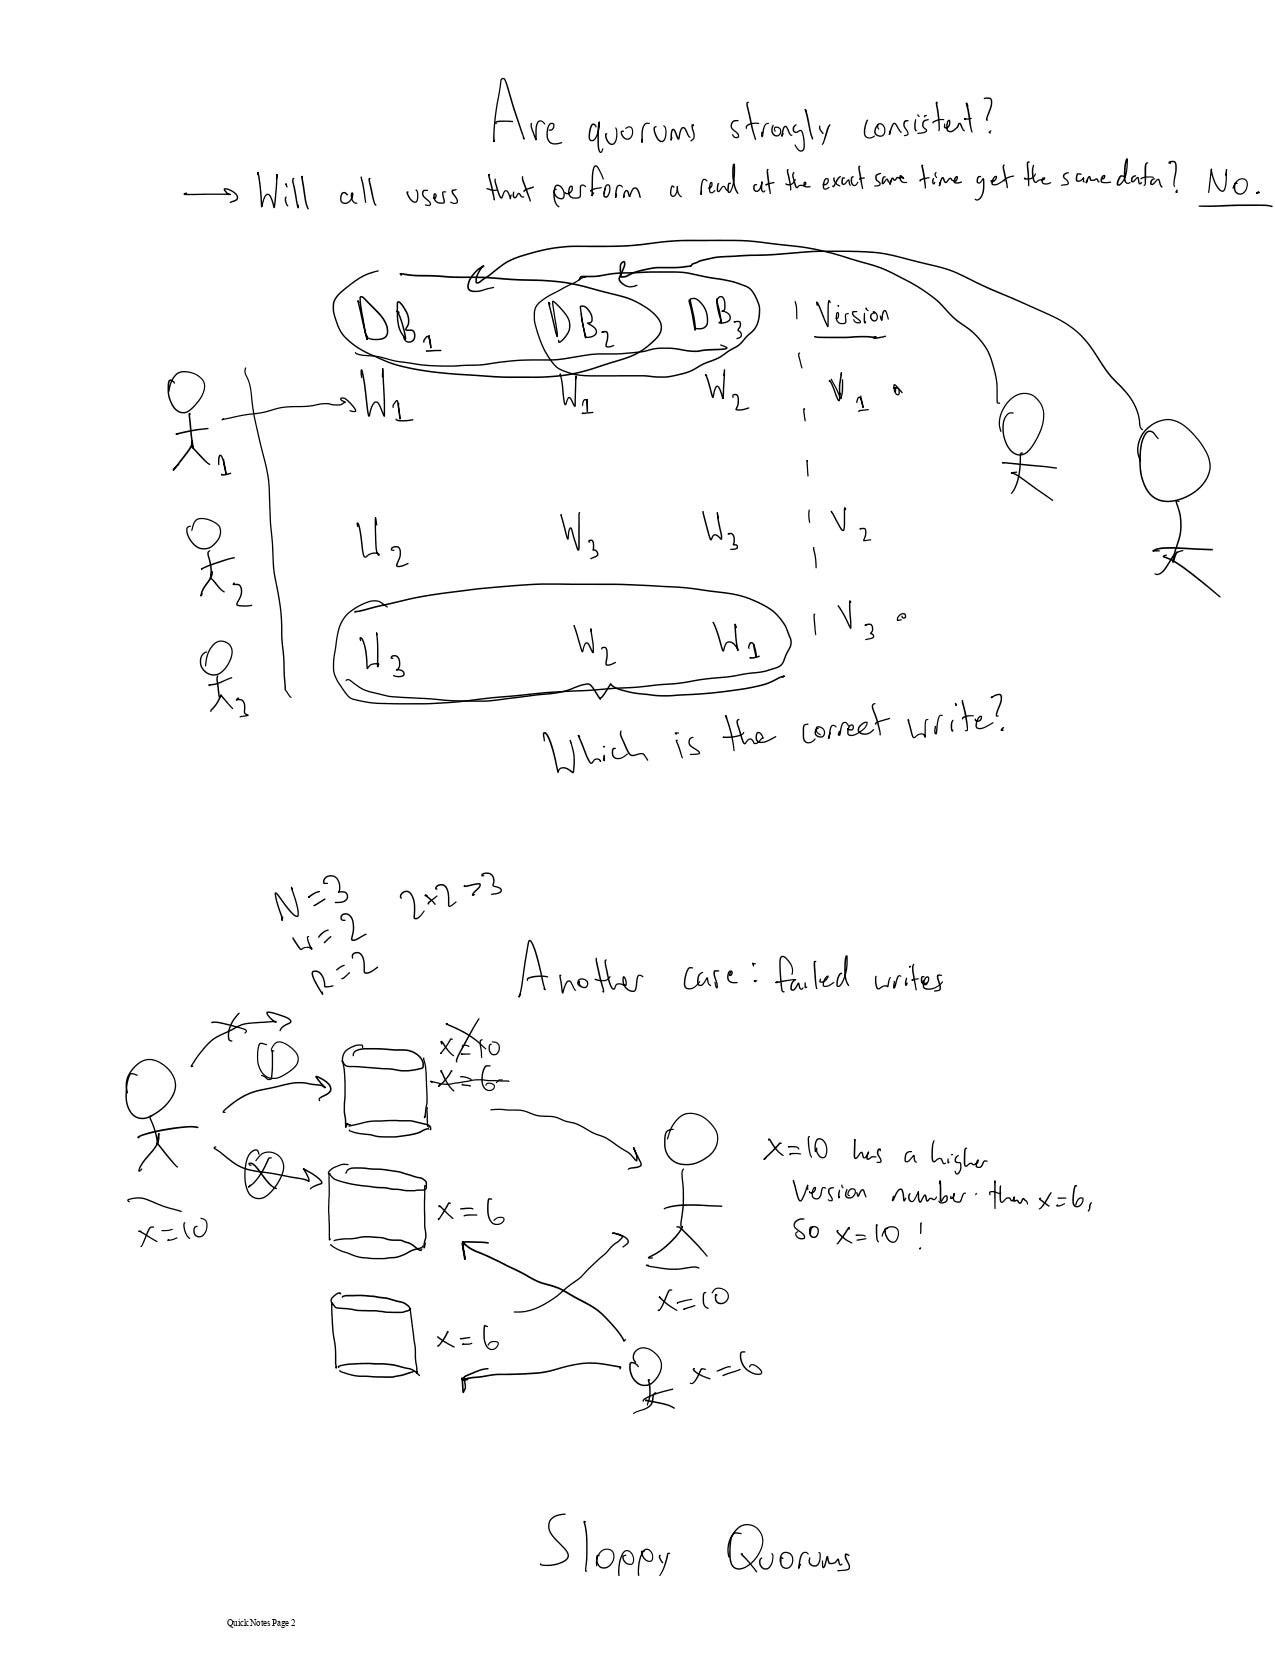 Are quorums strongly consistent?
→ Will all users that perform a read at the exact same time get the same data? No.
DB1 DB2 DB3 Version
W1 W1 W2 V1
1
W2 W3 W3 V2
2
W3 W2 W1 V3
3
Which is the correct write?
N=3 2+2>3
W=2
R=2
Another case: failed writes
x=10
x=6
x=10 has a higher
version number then x=6,
so x=10!
x=6
x=10
x=10
x=6
x=6
Sloppy Quorums
Quick Notes Page 2